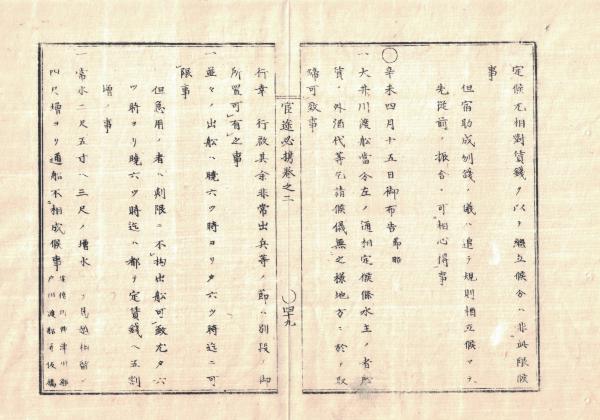 定候尤相對賃錢ヲ以テ繼立候分ハ非此限候
事
但宿助成刎錢ノ儀ハ追テ規則相立候マテ
先從前ノ振合ニ可相心得事
〇
辛未四月十五日御布告
一大井川渡船當分左ノ通相定候條水主ノ者船
賃ノ外酒代等乞請候儀無之樣地方ニ於テ取
締可致事
官途必携卷之二
〇四十九
行幸 行啟其余非常出兵等ノ節ハ別段ノ御
所置可有之事
一並々ノ出船ハ曉六ツ時ヨリ夕六ツ時迄ニ可
限事
但急用ノ者ハ刻限ニ不拘出船可致尤夕六
ツ時ヨリ曉六ツ時迄ハ都テ定賃錢ヘ五割
增ノ事
一常水二尺五寸ヘ三尺ノ增水ヲ見越相留
四尺增ヨリ通船不相成候事